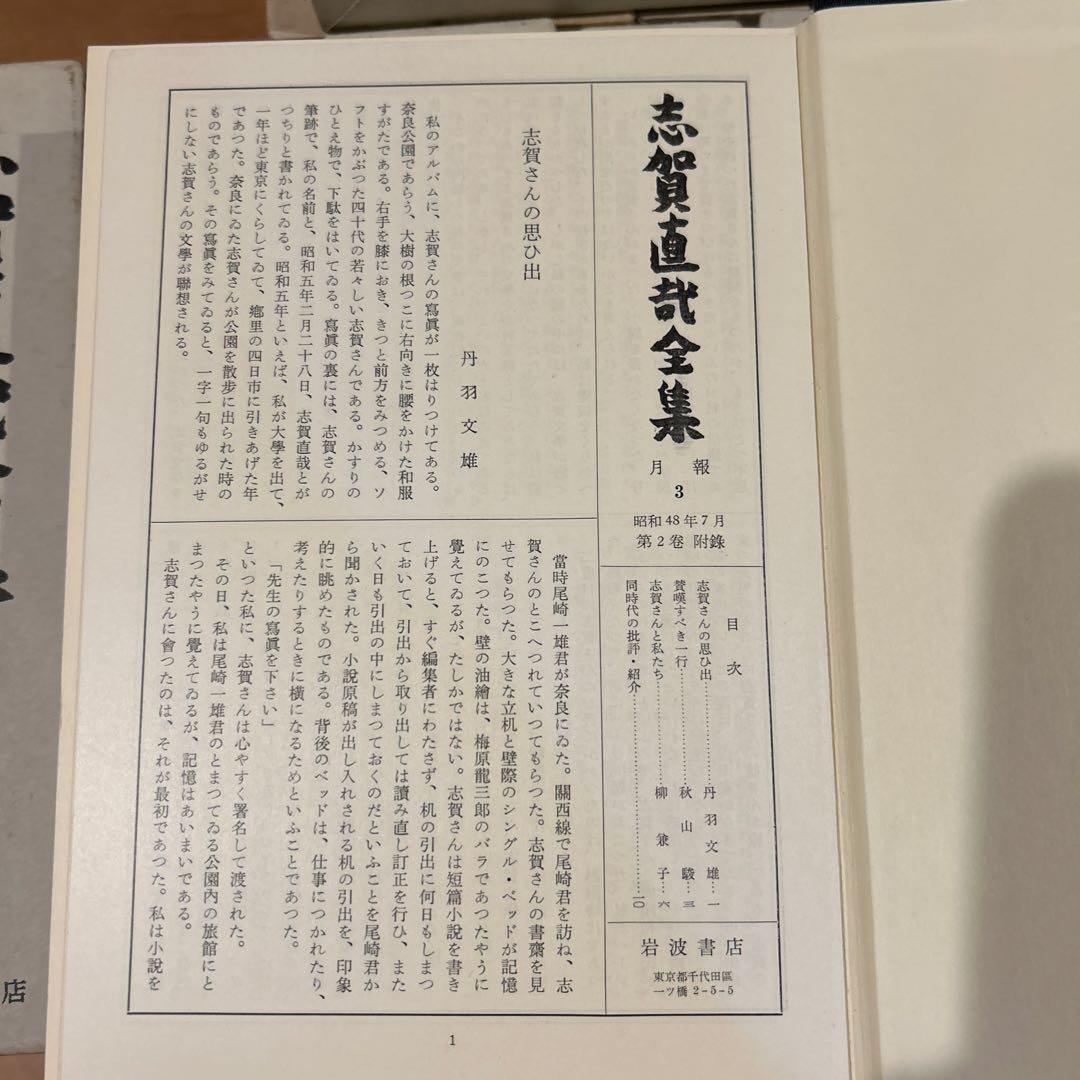 志賀直哉全集
月報
3
昭和48年7月
第2卷 附錄
目次
志賀さんの思ひ出……………丹羽文雄…一
賛嘆すべき一行……………秋山駿…三
志賀さんと私たち……………柳兼子…六
同時代の批評・紹介……………一〇
岩波書店
東京都千代田區
一ツ橋2-5-5
志賀さんの思ひ出
丹羽文雄
私のアルバムに、志賀さんの寫眞が一枚はりつけてある。
奈良公園であらう、大樹の根つこに右向きに腰をかけた和服
すがたである。右手を膝におき、きつと前方をみつめる、ソ
フトをかぶつた四十代の若々しい志賀さんである。かすりの
ひとえ物で、下駄をはいてゐる。寫眞の裏には、志賀さんの
筆跡で、私の名前と、昭和五年二月二十八日、志賀直哉とが
つちりと書かれてゐる。昭和五年といえば、私が大學を出て、
一年ほど東京にくらしてゐて、鄕里の四日市に引きあげた年
であつた。奈良にゐた志賀さんが公園を散歩に出られた時の
ものであらう。その寫眞をみてゐると、一字一句もゆるがせ
にしない志賀さんの文學が聯想される。
當時尾崎一雄君が奈良にゐた。關西線で尾崎君を訪ね、志
賀さんのとこへつれていつてもらつた。志賀さんの書齋を見
せてもらつた。大きな立机と壁際のシングル・ベッドが記憶
にのこつた。壁の油繪は、梅原龍三郎のバラであつたやうに
覺えてゐるが、たしかではない。志賀さんは短篇小說を書き
上げると、すぐ編集者にわたさず、机の引出に何日もしまつ
ておいて、引出から取り出しては讀み直し訂正を行ひ、また
いく日も引出の中にしまつておくのだといふことを尾崎君か
ら聞かされた。小說原稿が出し入れされる机の引出を、印象
的に眺めたものである。背後のベッドは、仕事につかれたり、
考えたりするときに橫になるためといふことであつた。
「先生の寫眞を下さい」
といつた私に、志賀さんは心やすく署名して渡された。
その日、私は尾崎一雄君のとまつてゐる公園內の旅館にと
まつたやうに覺えてゐるが、記憶はあいまいである。
志賀さんに會つたのは、それが最初であつた。私は小說を
1
店